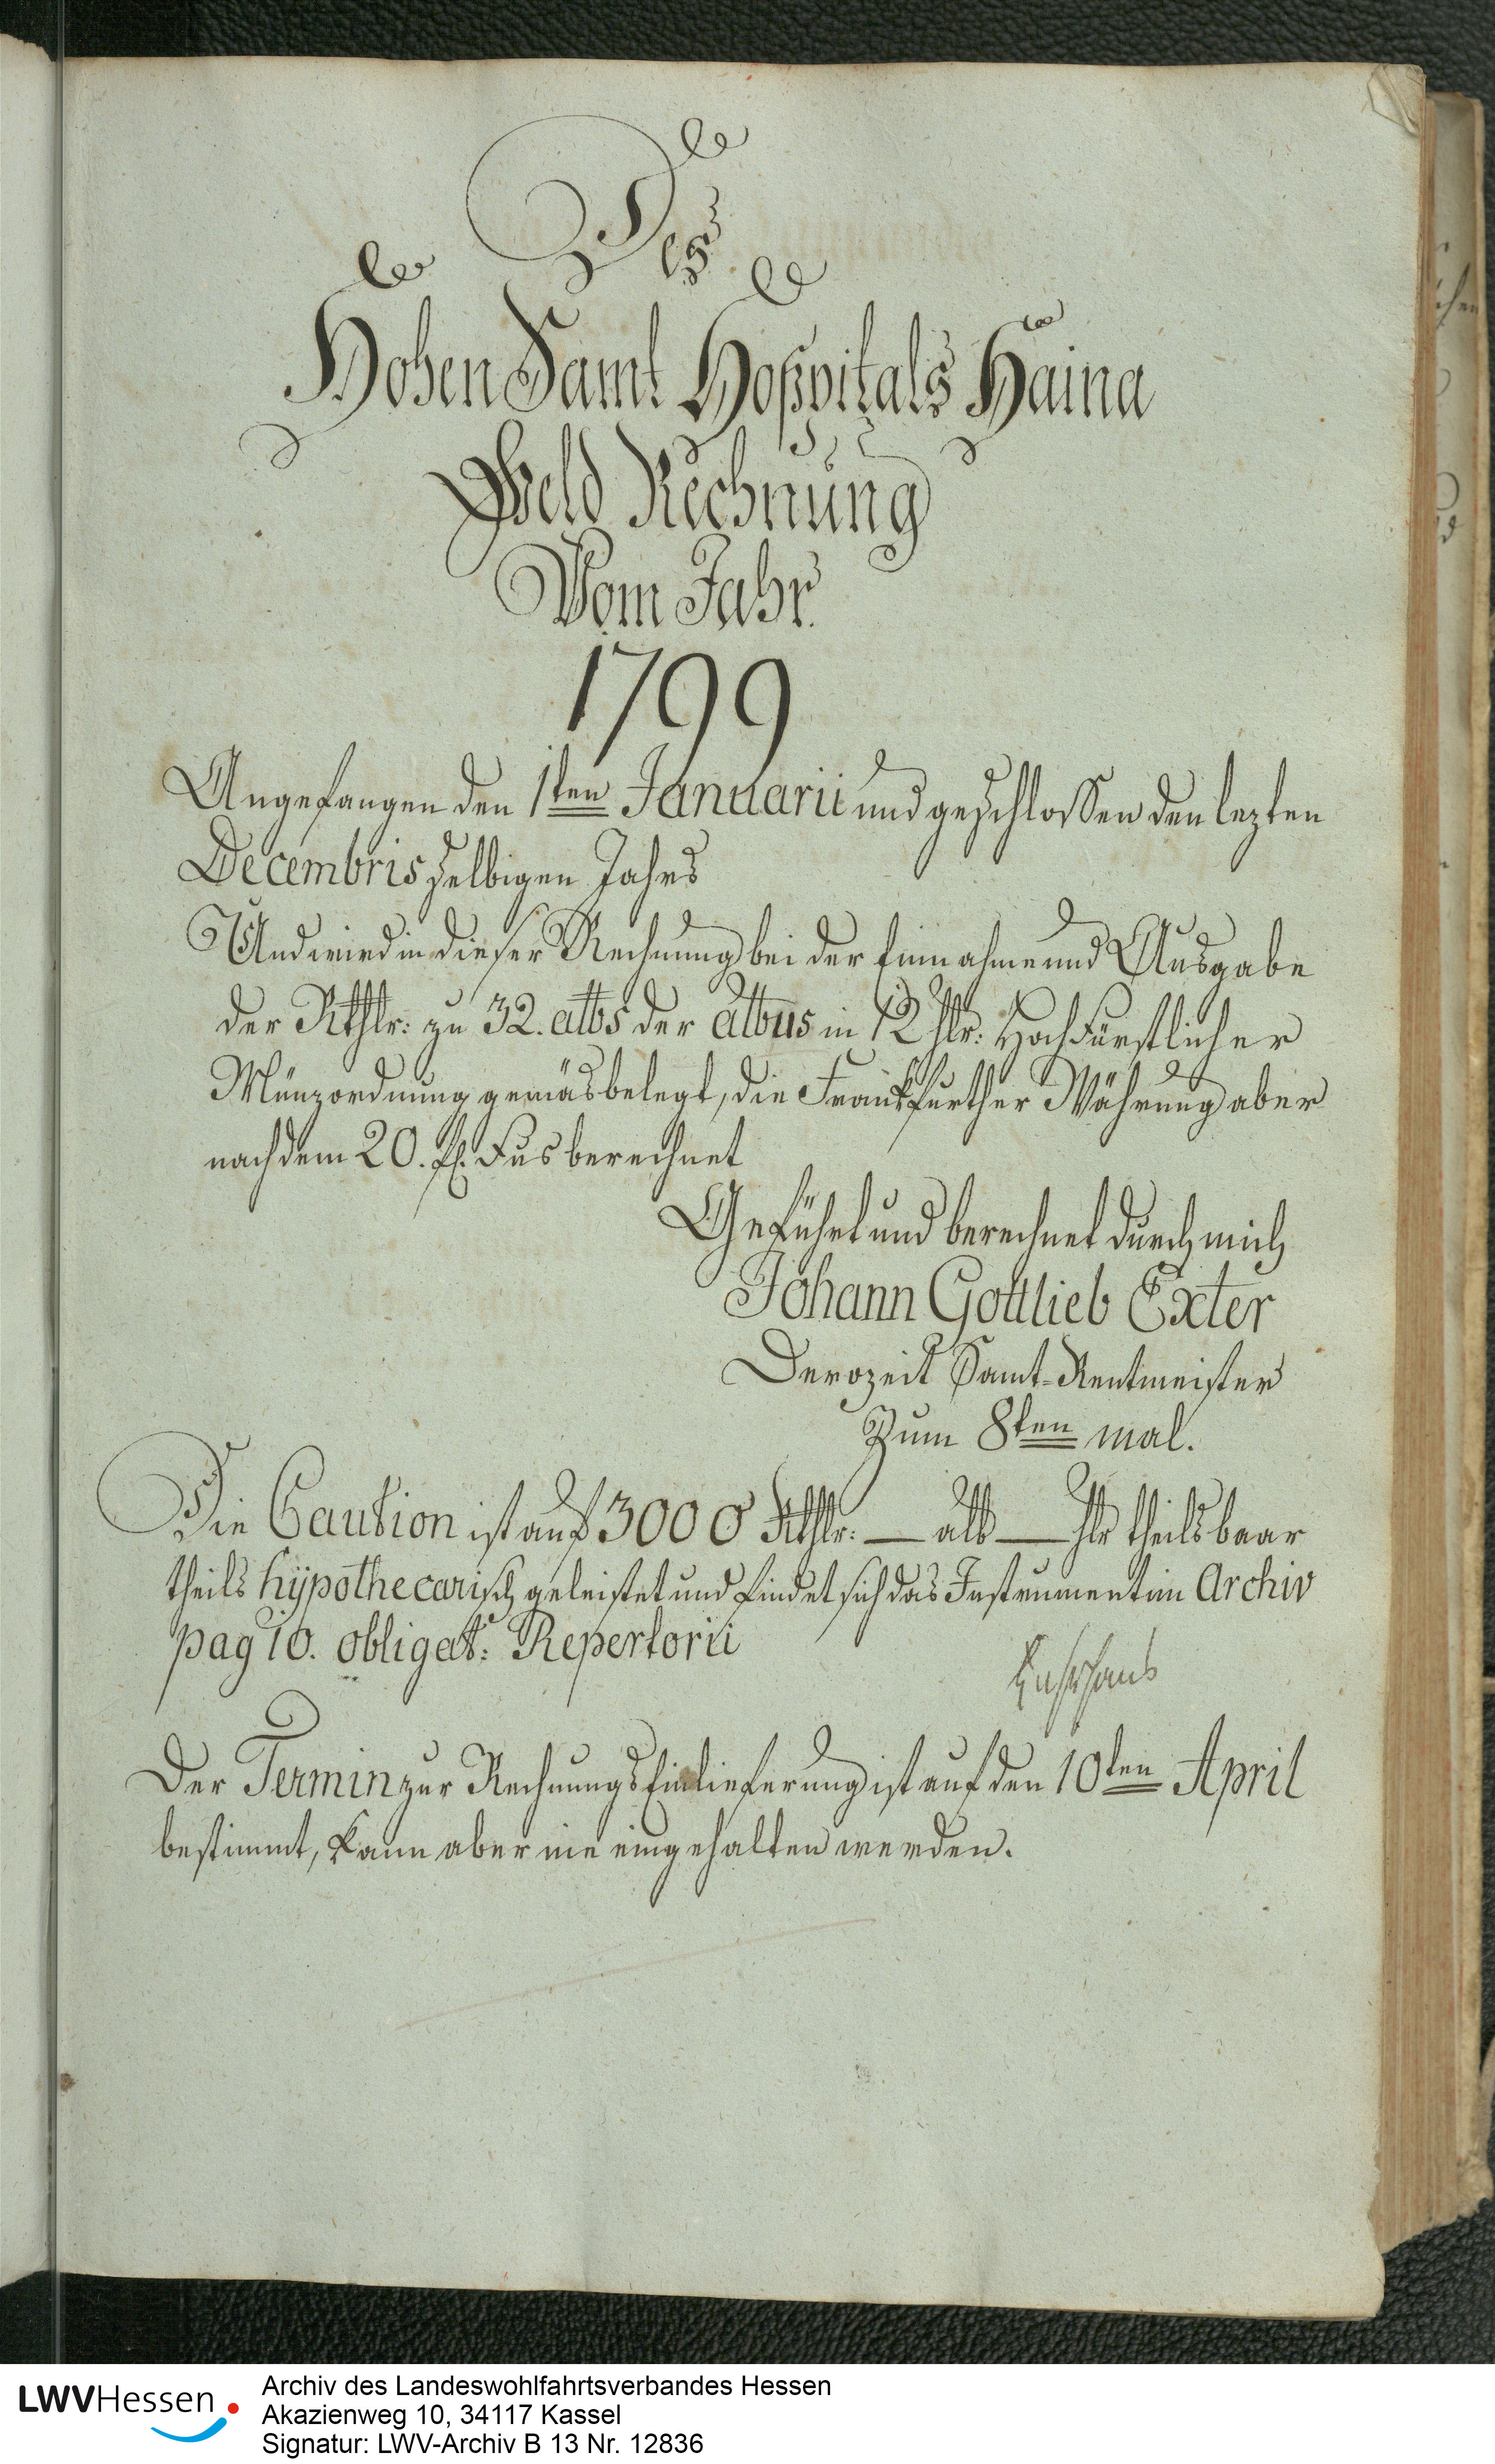 Des
Hohen Samt Hoßpitals Haina
Geld Rechnung
Vom Jahr.
1799
Angefangen den 1ten Januarii und geschlossen den lezten
Decembris selbigen Jahrs
Und wird in dieser Rechnung bei der Einnahme und Ausgabe
der Rthlr: zu 32. albs der albus in 12 hlr: HochFürstlicher
Münzordnung gemäs belegt, die Franckfurther Währung aber
nach dem 20. fl. Fus berechnet
Geführt und berechnet durch mich
Johann Gottlieb Exter
Derozeit Samt-Rentmeister
Zum 8ten mal.
Die Caution ist auf 3000 Rthlr: — alb — hlr theils baar
theils hÿpothecarisch geleistet und findet sich das Instrument im Archiv
pag 10. obligat: Repertorii
Der Termin zur Rechnungs Einlieferung ist auf den 10ten April
bestimmt, kann aber nie eingehalten werden.
LWVHessen
Archiv des Landeswohlfahrtsverbandes Hessen
Akazienweg 10, 34117 Kassel
Signatur: LWV-Archiv B 13 Nr. 12836